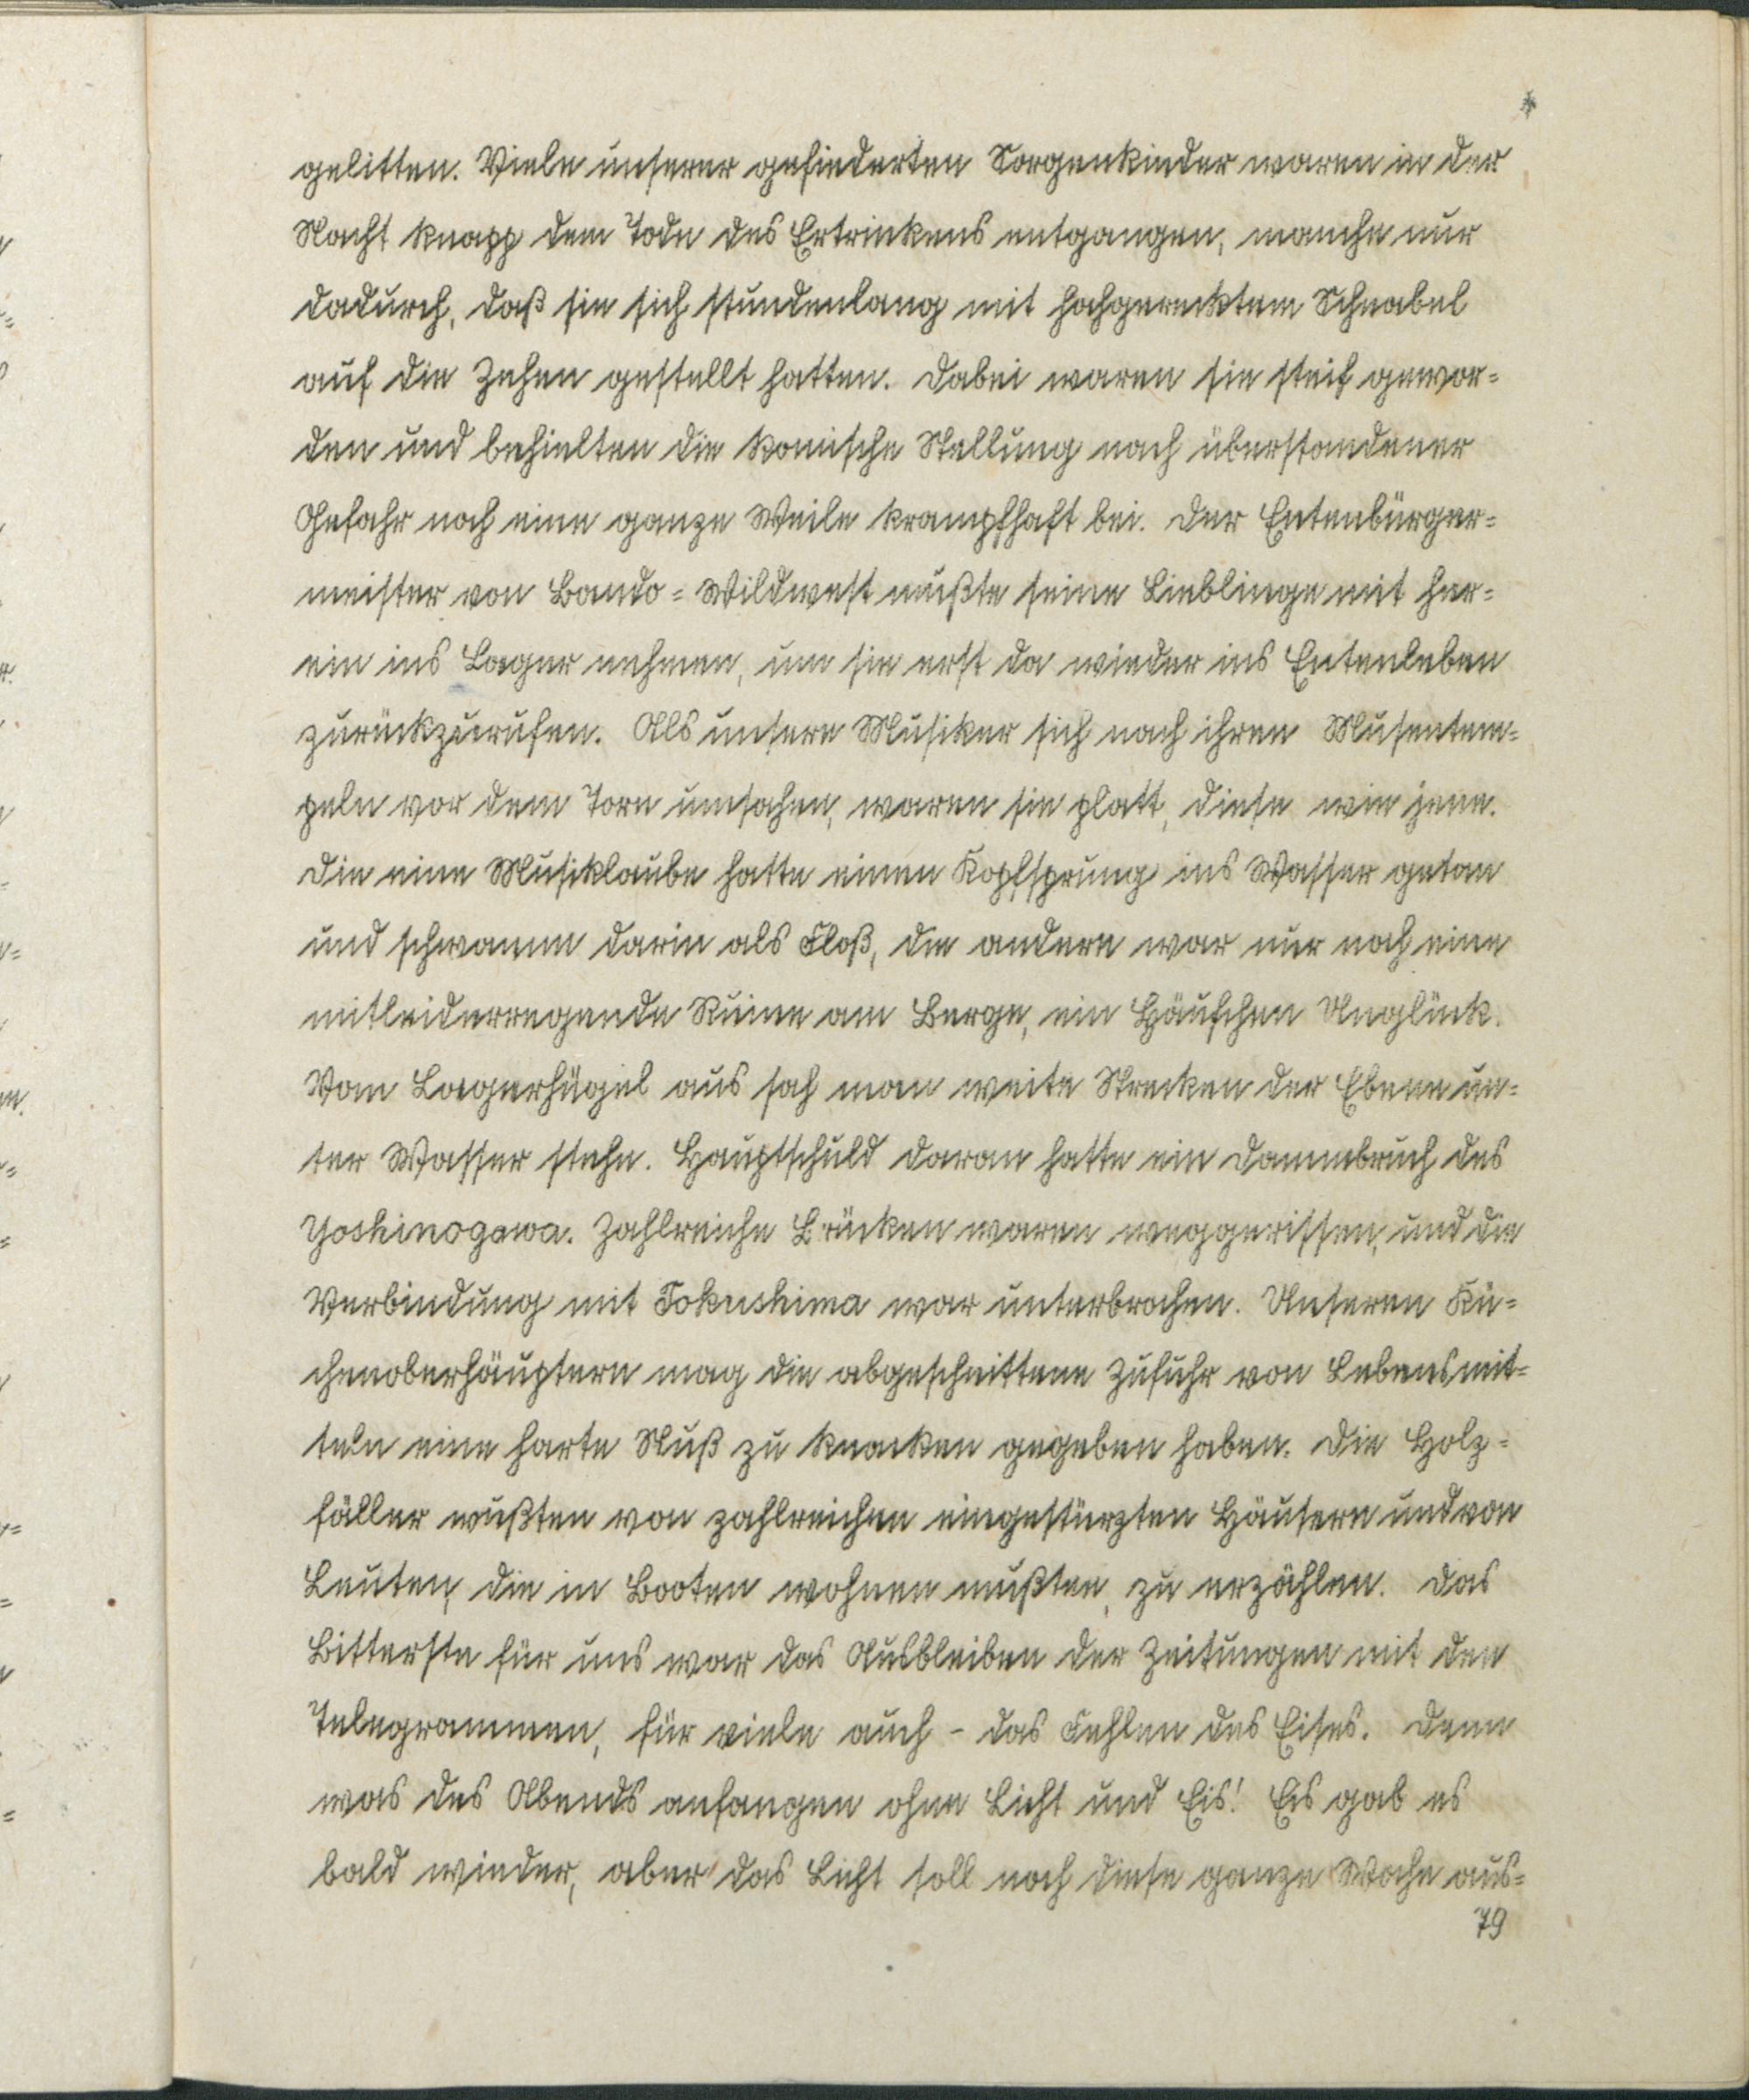 gelitten. Viele unserer gefiederten Sorgenkinder waren in der
Nacht knapp dem Tode des Ertrinkens entgangen, manche nur
dadurch, daß sie sich stundenlang mit hochgerecktem Schnabel
auf die Zehen gestellt hatten. Dabei waren sie steif gewor=
den und behielten die komische Stellung nach überstandener
Gefahr noch eine ganze Weile krampfhaft bei. Der Entenbürger=
meister von Bando=Wildwest mußte seine Lieblinge mit her=
ein ins Lager nehmen, um sie erst da wieder ins Entenleben
zurückzurufen. Als unsere Musiker sich nach ihren Musentem=
peln vor dem Tore umsahen, waren sie platt, diese wie jene.
Die eine Musiklaube hatte einen Kopfsprung ins Wasser getan
und schwamm darin als Floß, die andere war nur noch eine
mitleiderregende Ruine am Berge, ein Häufchen Unglück.
Vom Lagerhügel aus sah man weite Strecken der Ebene un=
ter Wasser stehn. Hauptschuld daran hatte ein Dammbruch des
Yoshinogawa. Zahlreiche Brücken waren weggerissen, und die
Verbindung mit Tokushima war unterbrochen. Unseren Kü=
chenoberhäuptern mag die abgeschnittene Zufuhr von Lebensmit=
teln eine harte Nuß zu knacken gegeben haben. Die Holz=
fäller wußten von zahlreichen eingestürzten Häusern und von
Leuten, die in Booten wohnen mußten, zu erzählen. Das
Bitterste für uns war das Ausbleiben der Zeitungen mit den
Telegrammen, für viele auch - das Fehlen des Eises. Denn
was des Abends anfangen ohne Licht und Eis! Eis gab es
bald wieder, aber das Licht soll noch diese ganze Woche aus=
79